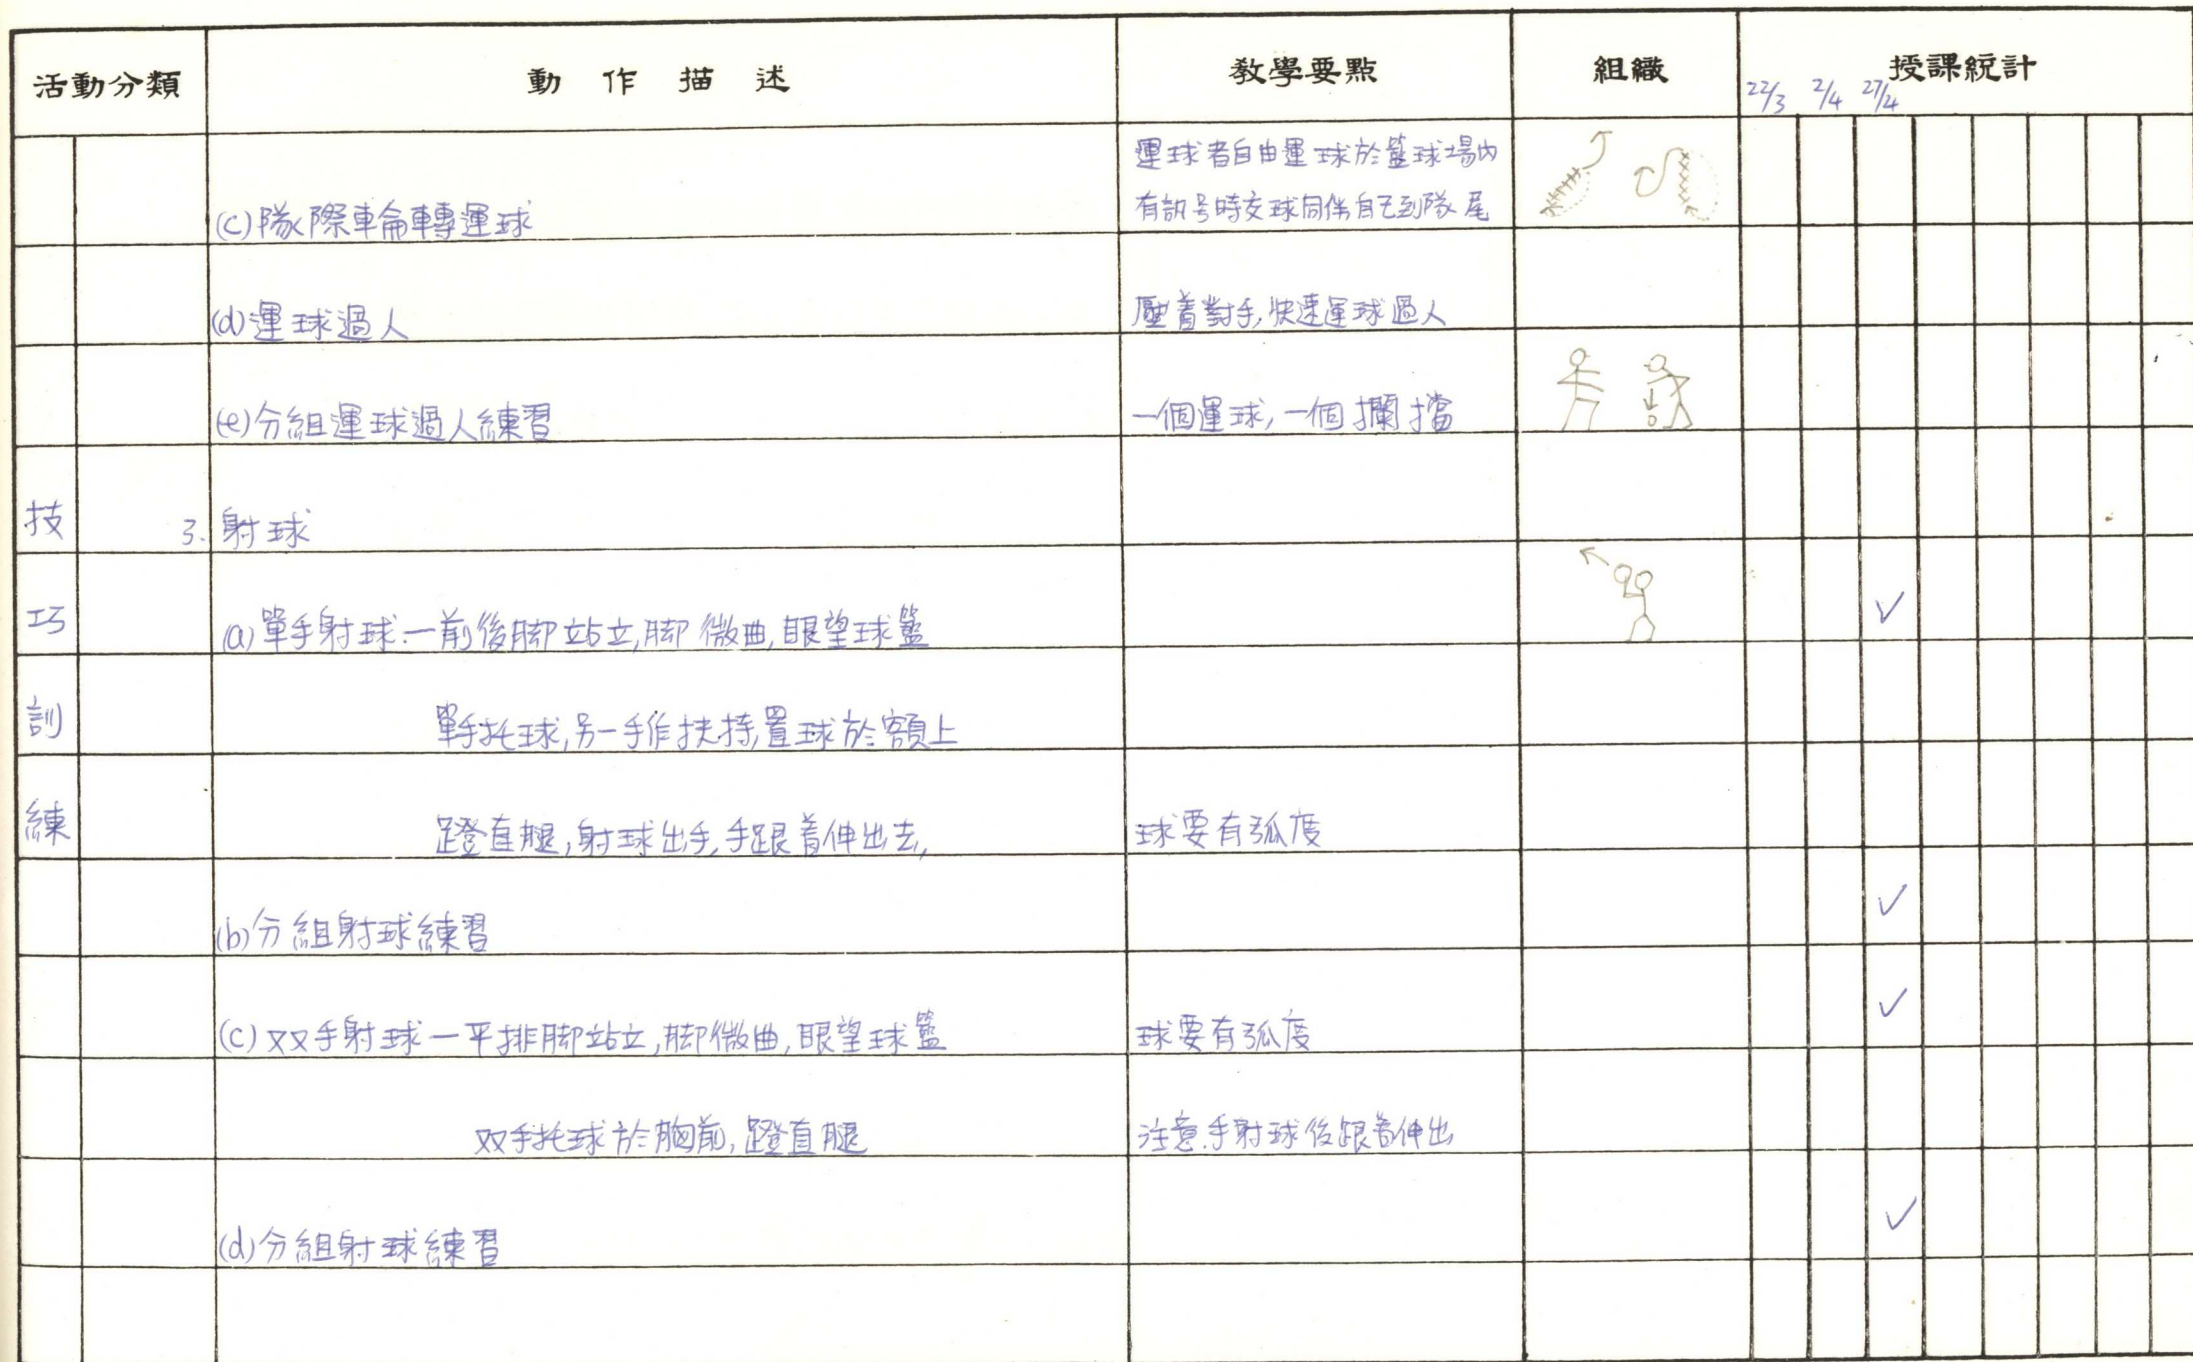 活動分類 動作描述 教學要點 組織 授課統計
22/3 2/4 27/4
運球者自由運球於籃球場內
(c)隊際車侖轉運球 有訊号時交球同伴自己到隊尾
(d)運球過人 壓着對手,快速運球過人
(e)分組運球過人練習 一個運球,一個攔擋
技 3. 射球
巧 (a)單手射球:一前後脚站立,脚微曲,眼望球籃 ✓
訓 單手托球,另一手作扶持,置球於額上
練 蹬直腿,射球出手,手跟着伸出去, 球要有弧度
(b)分組射球練習 ✓
(c)双手射球一平排脚站立,脚微曲,眼望球籃 球要有弧度 ✓
双手托球於胸前,蹬直腿 注意.手射球後跟着伸出
(d)分組射球練習 ✓